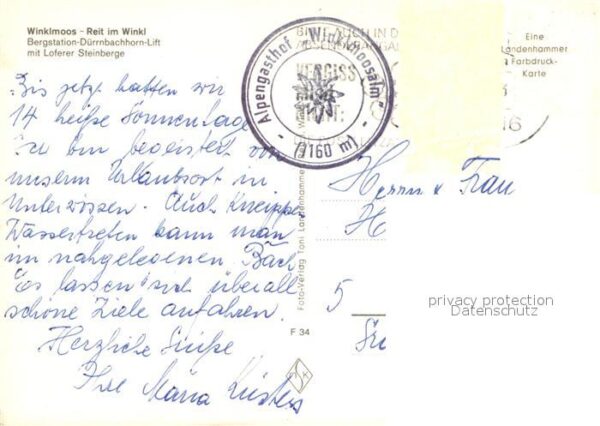 Winklmoos - Reit im Winkl
Bergstation-Dürrnbachhorn-Lift
mit Loferer Steinberge
Bis jetzt hatten wir
14 heiße Sonnentage
bin begeistert von
unserm Urlaubsort in
Unterwössen. Auch Kneipp
Wassertreten kann man
im nahgelegenen Bach
Es lassen sich überall
schöne Ziele anfahren.
Herzliche Grüße
Ihre Maria
Alpengasthof "Winklmoosalm"
- (1160 m) -
VERGISS
Foto-Verlag Toni Landenhammer
F 34
Eine
Landenhammer
Farbdruck-
Karte
16
Herrn u Frau
H
5
privacy protection
Datenschutz